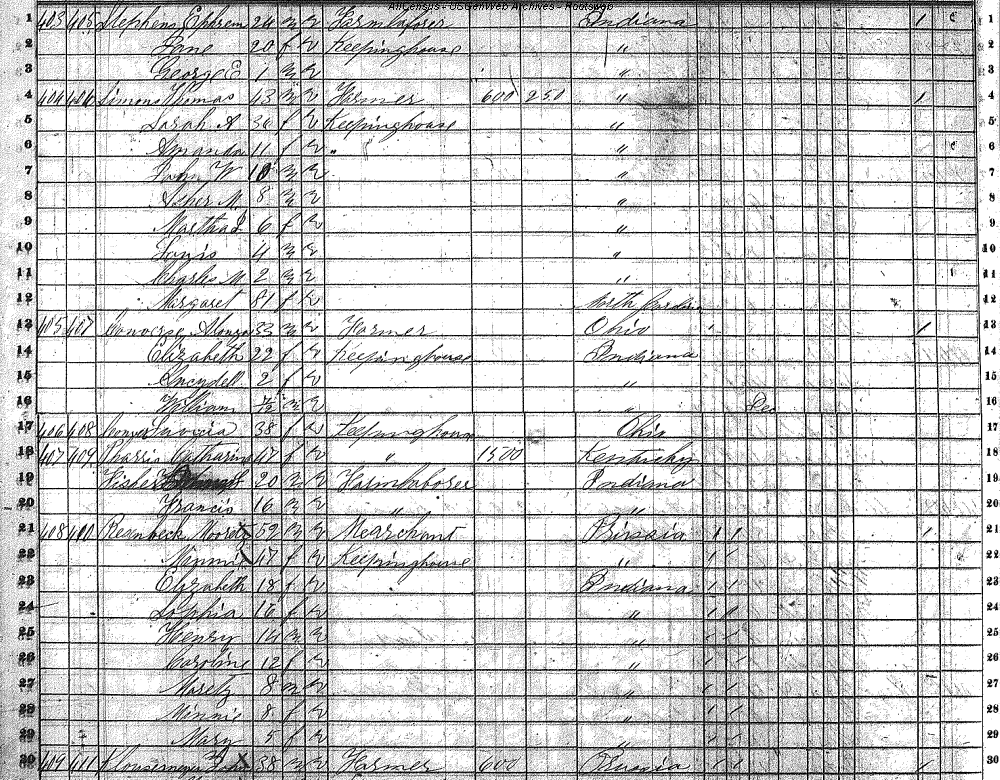 AHGPCensus - USGenWeb Archives - Rootsweb
1 403 405 Stephens Ephrem 24 m w Farmlaborer Indiana 1 1
2 Jane 20 f w Keepinghouse " 2
3 George E 1 m w " 3
4 404 406 Simons Thomas 43 m w Farmer 600 250 " 1 4
5 Sarah A 36 f w Keepinghouse " 5
6 Amanda 11 f w " " 6
7 John W 10 m w " 7
8 Asher M 8 m w " 8
9 Martha J 6 f w " 9
10 4 m w " 10
11 Charles M 2 m w " 11
12 Margaret 81 f w North 12
13 405 407 Converse Alonzo 33 m w Farmer Ohio 1 13
14 Elizabeth 22 f w Keepinghouse Indiana 14
15 2 f w " 15
16 William m w " Dec 16
17 406 408 38 f w Keepinghouse Ohio 17
18 407 409 Catharine 47 f w " 1500 Kentucky 18
19 Fisher 20 m w Farmlaborer Indiana 19
20 Francis 16 m w " " 20
21 408 400 59 m w Mearchant 1 1 1 21
22 47 f w Keepinghouse " 1 1 22
23 Elizabeth 18 f w Indiana 1 1 23
24 Sophia 16 f w " 1 1 24
25 Henry 14 m w " 1 1 25
26 Caroline 12 f w " 1 1 26
27 Moretz 8 m w " 1 1 27
28 Minnie 8 f w " 1 1 28
29 Mary 5 f w " 1 1 29
30 409 411 38 m w Farmer 600 1 1 1 30